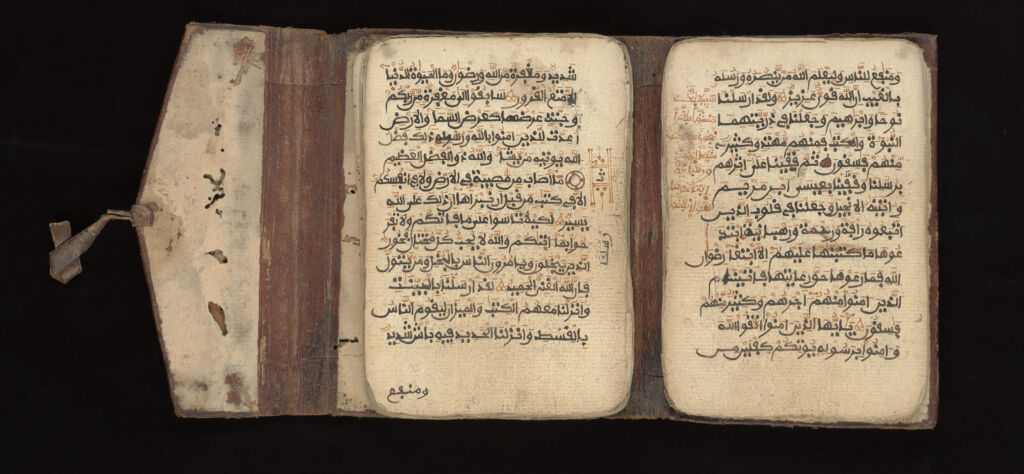 شديد ومغفرة من الله ورضون وما الحيوة الدنيا
الا متع الغرور سابقوا الى مغفرة من ربكم
وجنة عرضها كعرض السما والارض
اعدت للذين امنوا بالله ورسله ذلك فضل
الله يوتيه من يشا والله ذو الفضل العظيم
ما اصاب من مصيبة في الارض ولا في انفسكم
الا في كتب من قبل ان نبراها ان ذلك على الله
يسير لكيلا تاسوا على ما فاتكم ولا تفر
حوا بما اتيكم والله لا يحب كل مختال فخور
الذين يبخلون ويامرون الناس بالبخل ومن يتول
فان الله الغني الحميد لقد ارسلنا بالبينت
رسلنا
وانزلنا معهم الكتب والميزان ليقوم الناس
بالقسط وانزلنا الحديد فيه باس شديد
ومنفع
ومنفع للناس وليعلم الله من ينصره ورسله
بالغيب ان الله قوي عزيز ولقد ارسلنا
نوحا وابرهيم وجعلنا في ذريتهما
النبوة والكتب فمنهم مهتد وكثير
منهم فسقون ثم قفينا على اثرهم
برسلنا وقفينا بعيسى ابن مريم
واتينه الانجيل وجعلنا في قلوب الذين
اتبعوه رافة ورحمة ورهبانية ابتد
عوها ما كتبنها عليهم الا ابتغا رضون
الله فما رعوها حق رعايتها فاتينا
الذين امنوا منهم اجرهم وكثير منهم
فسقون يايها الذين امنوا اتقوا الله
وامنوا برسوله يوتكم كفلين من